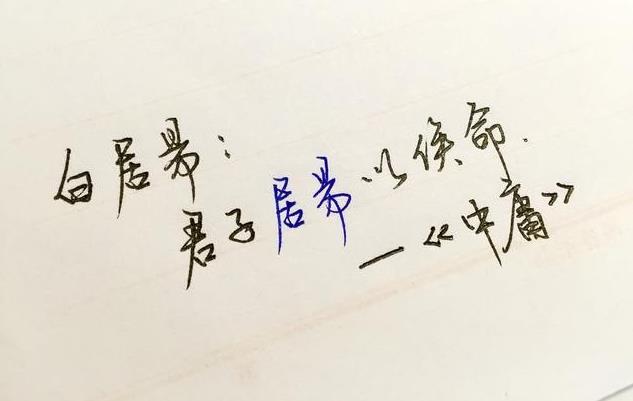 白居易：
君子居易以俟命.
—《中庸》